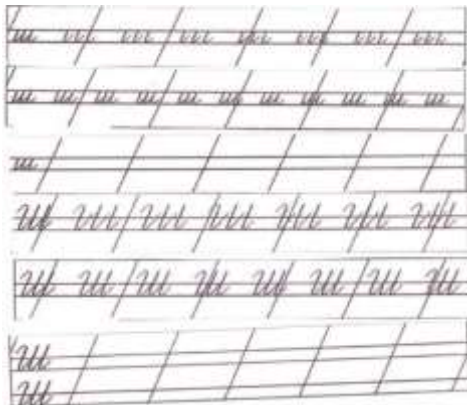 ш ш ш ш ш ш ш ш
ш ш ш ш ш ш ш ш ш ш ш
ш
Ш Ш Ш Ш Ш Ш Ш
Ш Ш Ш Ш Ш Ш Ш Ш
Ш
Ш